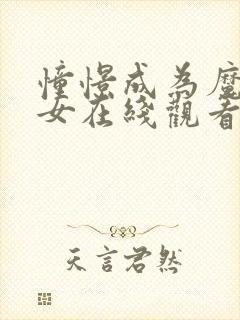 憧憬成為魔
女在綫觀看
天言君然